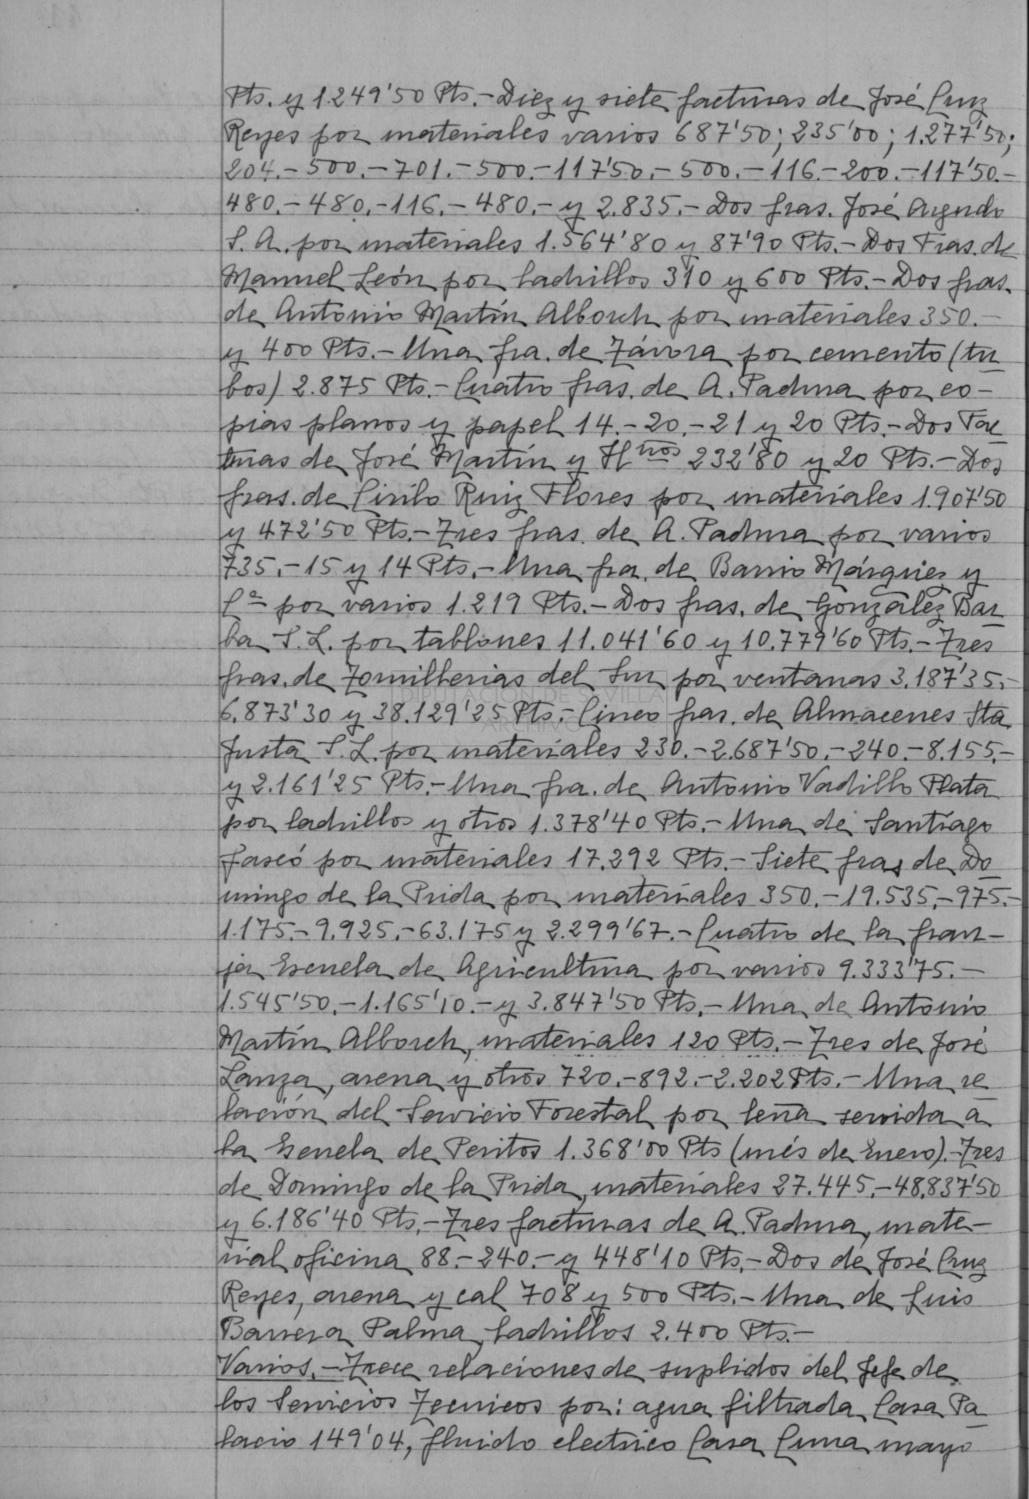 Pts. y 1.249'50 Pts.- Diez y siete facturas de José Cruz
Reyes por materiales varios 687'50; 235'00; 1.277'50;
204.- 500.- 701.- 500.- 117'50.- 500.- 116.- 200.- 117'50.-
480.- 480.- 116.- 480.- y 2.835.- Dos fras. José Agudo
S. A. por materiales 1.564'80 y 87'90 Pts.- Dos Fras. de
Manuel León por ladrillos 310 y 600 Pts.- Dos fras.
de Antonio Martín Alborch por materiales 350.-
y 400 Pts.- Una fra. de Závora por cemento (tu
bos) 2.875 Pts.- Cuatro fras. de A. Padura por co-
pias planos y papel 14.- 20.- 21 y 20 Pts.- Dos Fac
turas de José Martín y Hnos 232'80 y 20 Pts.- Dos
fras. de Cirilo Ruiz Flores por materiales 1.907'50
y 472'50 Pts.- Tres fras. de A. Padura por varios
735.- 15 y 14 Pts.- Una fra. de Barrio Márquez y
Cª por varios 1.219 Pts.- Dos fras. de González Bar
ba S. L. por tablones 11.041'60 y 10.779'60 Pts.- Tres
fras. de Tornillerias del Sur por ventanas 3.187'35.-
6.873'30 y 38.129'25 Pts.- Cinco fras. de Almacenes Sta
DIPUTACIÓN DE SEVILLA
ARCHIVO
Justa S. L. por materiales 230.- 2.687'50.- 240.- 8.155.-
y 2.161'25 Pts.- Una fra. de Antonio Vadillo Plata
por ladrillos y otros 1.378'40 Pts.- Una de Santiago
Fascó por materiales 17.292 Pts.- Siete fras de Do
mingo de la Prida por materiales 350.- 19.535.- 975.-
1.175.- 9.925.- 63.175 y 2.299'67.- Cuatro de la Gran-
ja Escuela de Agricultura por varios 9.333'75.-
1.545'50.- 1.165'10.- y 3.847'50 Pts.- Una de Antonio
Martín Alborch, materiales 120 Pts.- Tres de José
Lanza, arena y otros 720.- 892.- 2.202 Pts.- Una re
lación del Servicio Forestal por leña servida a
la Escuela de Peritos 1.368'00 Pts (més de Enero).- Tres
de Domingo de la Prida, materiales 27.445.- 48.837'50
y 6.186'40 Pts.- Tres facturas de A. Padura, mate-
rial oficina 88.- 240.- y 448'10 Pts.- Dos de José Cruz
Reyes, arena y cal 708 y 500 Pts.- Una de Luis
Barrera Palma, ladrillos 2.400 Pts.-
Varios.- Trece relaciones de suplidos del Jefe de
los Servicios Tecnicos por: agua filtrada Casa Pa
lacio 149'04, fluido electrico Casa Cuna mayo